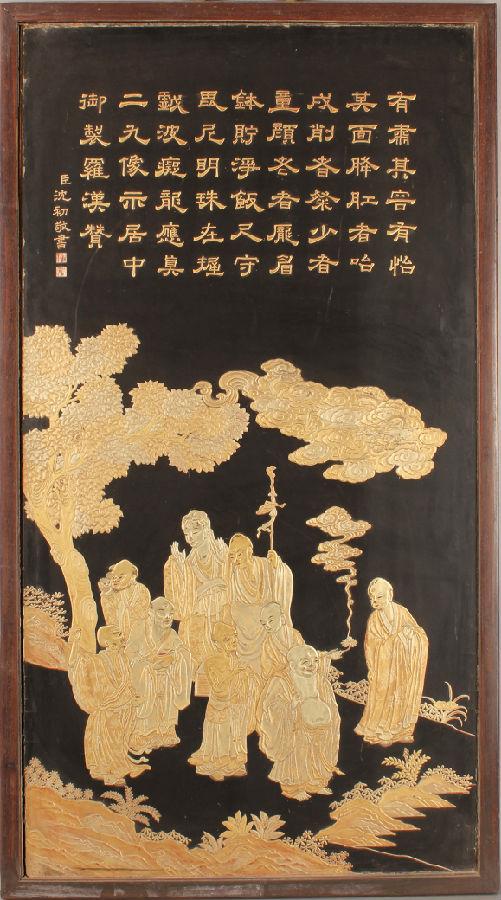 有肅其容有怡
其面降肛者咍
戍削者粲少者
童顏老者厖眉
鉢貯淨飯尺守
毘尼明珠在握
戲波癡龍應真
二九像示居中
御製羅漢贊
臣沈初敬書